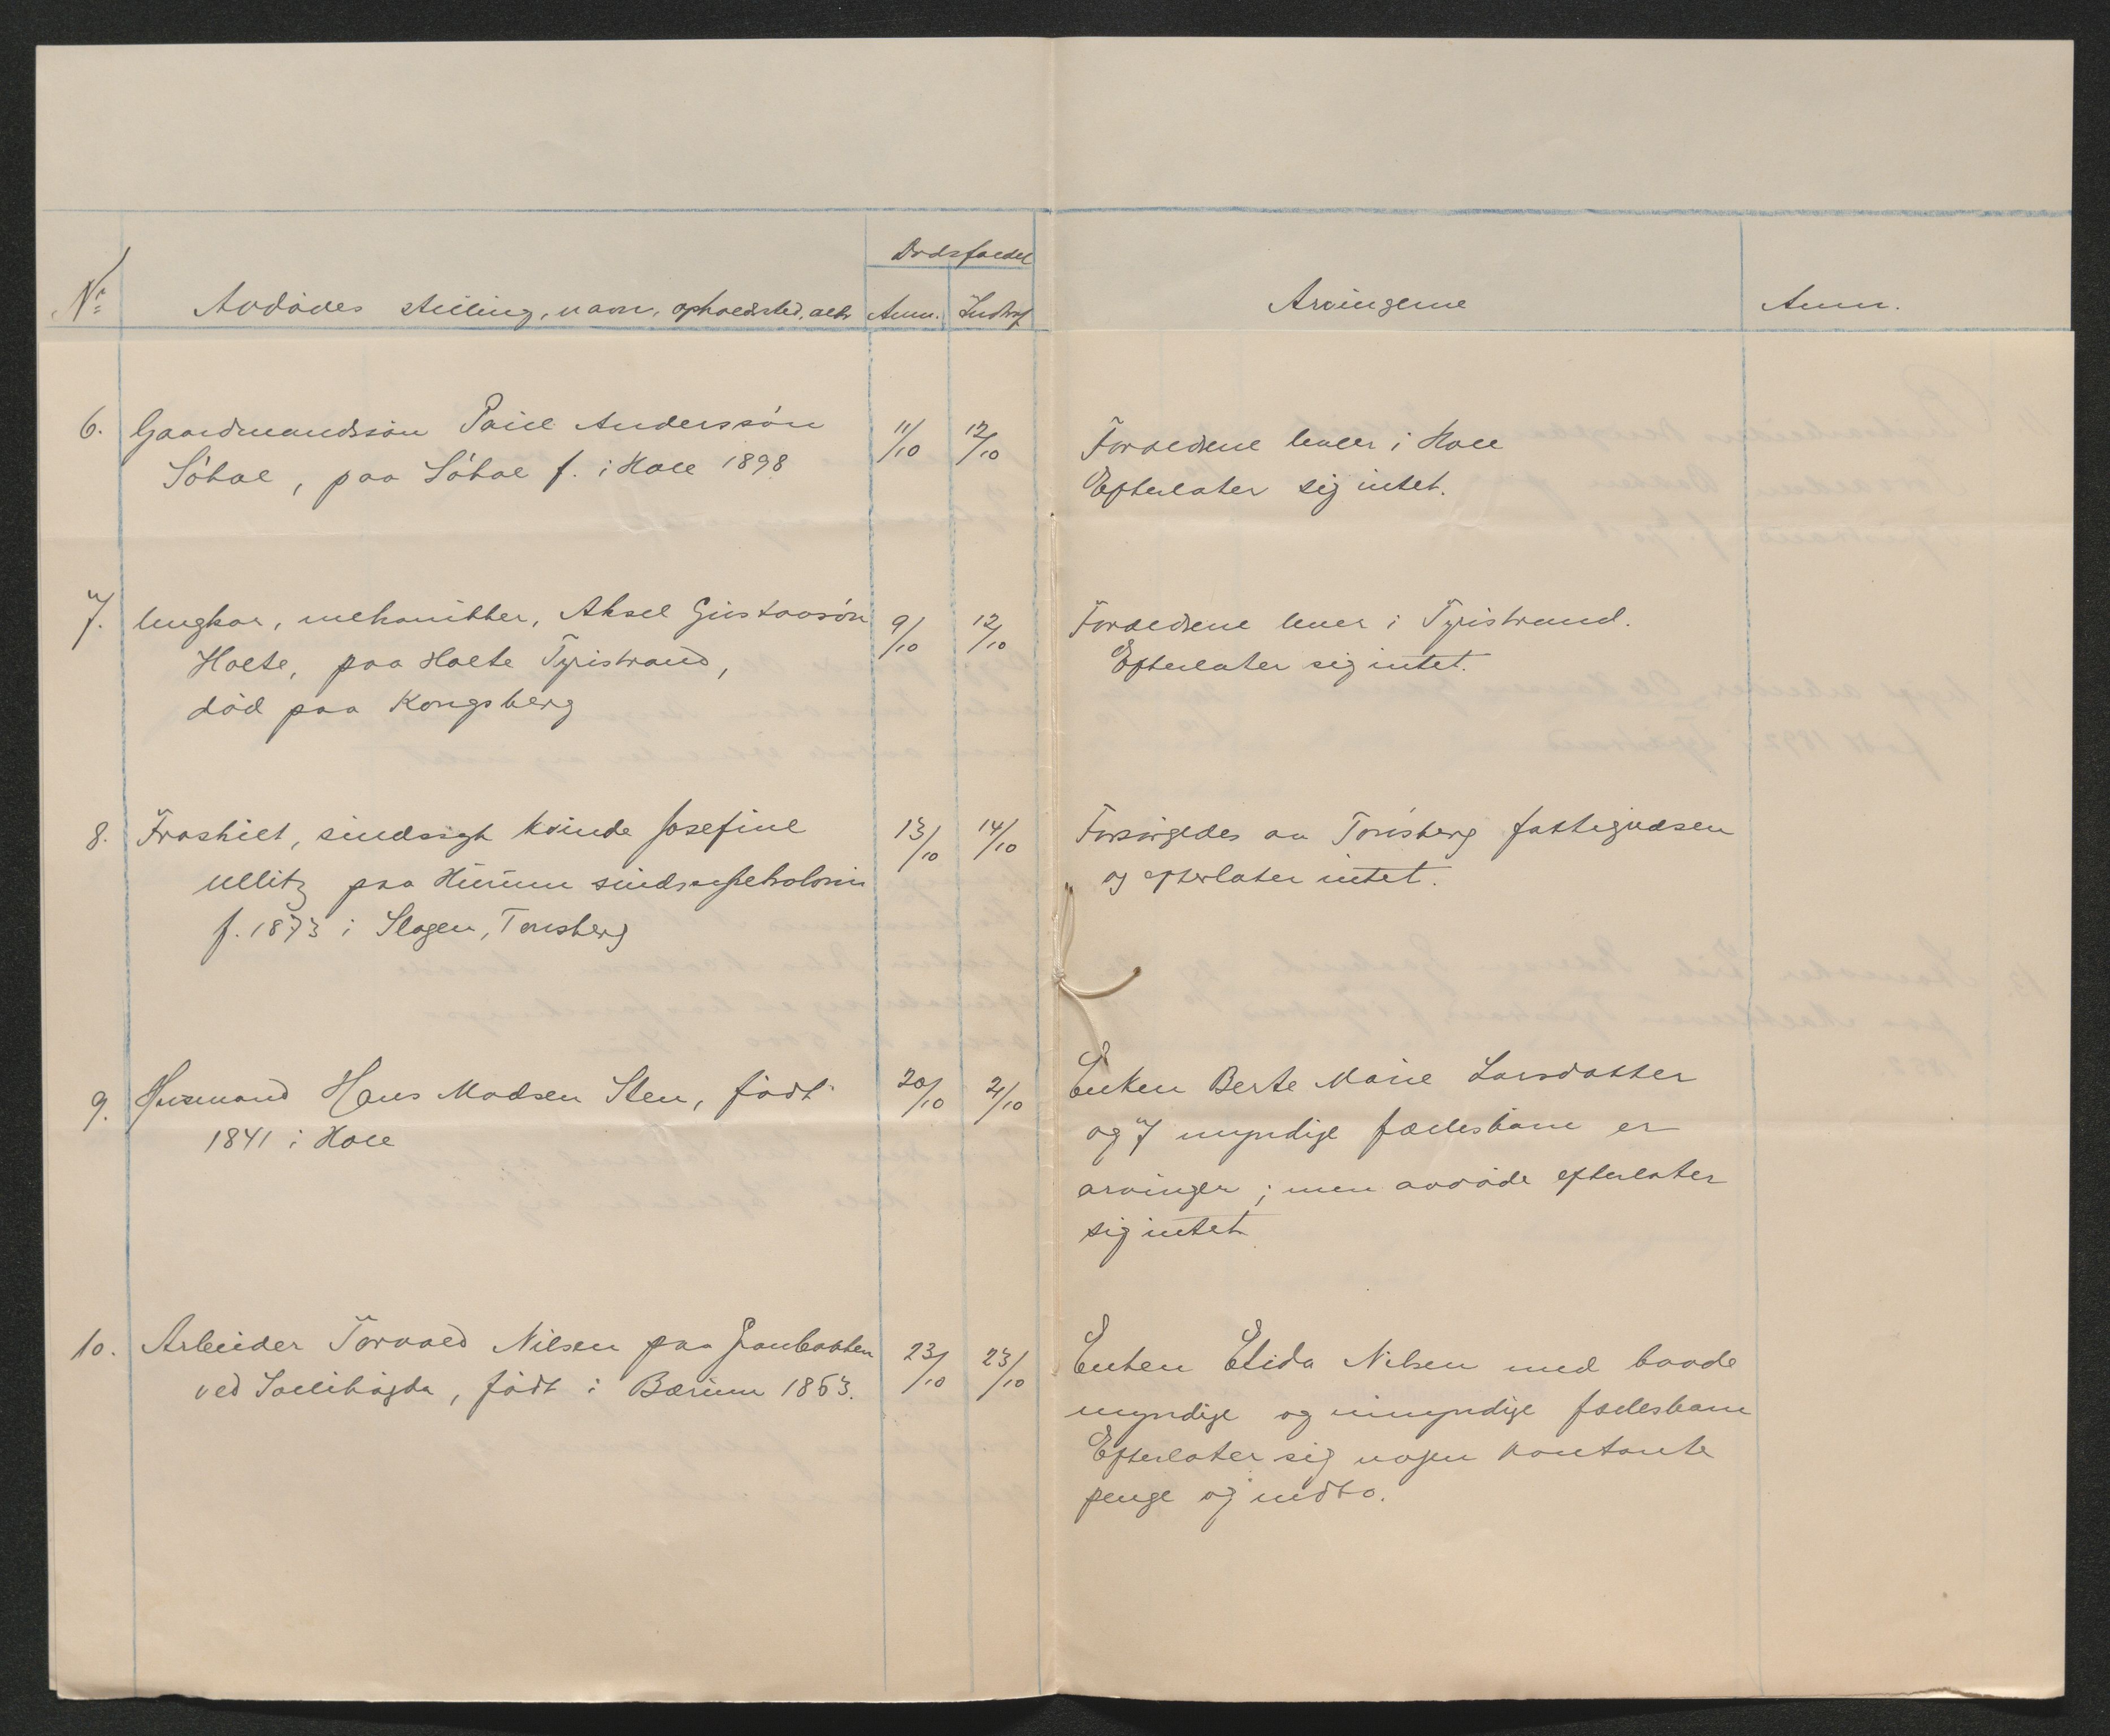 Dødsfaldet
Nr. Avdødes stilling, navn, opholdssted, alder Anm. Indtraf Arvingerne Anm.
6. Gaardmandssøn Paul Anderssøn 11/10 12/10 Forældrene lever i Hole
Søhol, paa Søhol f. i Hole 1898 Efterlater sig intet.
7. Ungkar, mekanikker, Aksel Gustavsøn 9/10 12/10 Forældrene lever i Tyristrand.
Holte, paa Holte Tyristrand, Efterlater sig intet.
død paa Kongsberg
8. Fraskilt, sindssygt kvinde Josefine 13/10 14/10 Forsørgedes av Tønsberg fattigvæsen
Ullitz paa Hurum sindssykekoloni og efterlater intet.
f. 1873 i Slagen, Tønsberg
9. Husmand Hans Madsen Sten, født 20/10 2/10 Enken Berte Marie Larsdatter
1841 i Hole og 7 myndige fællesbarn er
arvinger; men avdøde efterlater
sig intet
10. Arbeider Torvald Nilsen paa Granbakken 23/10 23/10 Enken Elida Nilsen med baade
ved Sollihøgda, født i Bærum 1863. myndige og umyndige fællesbarn
Efterlater sig nogen kontante
penge og indbo.